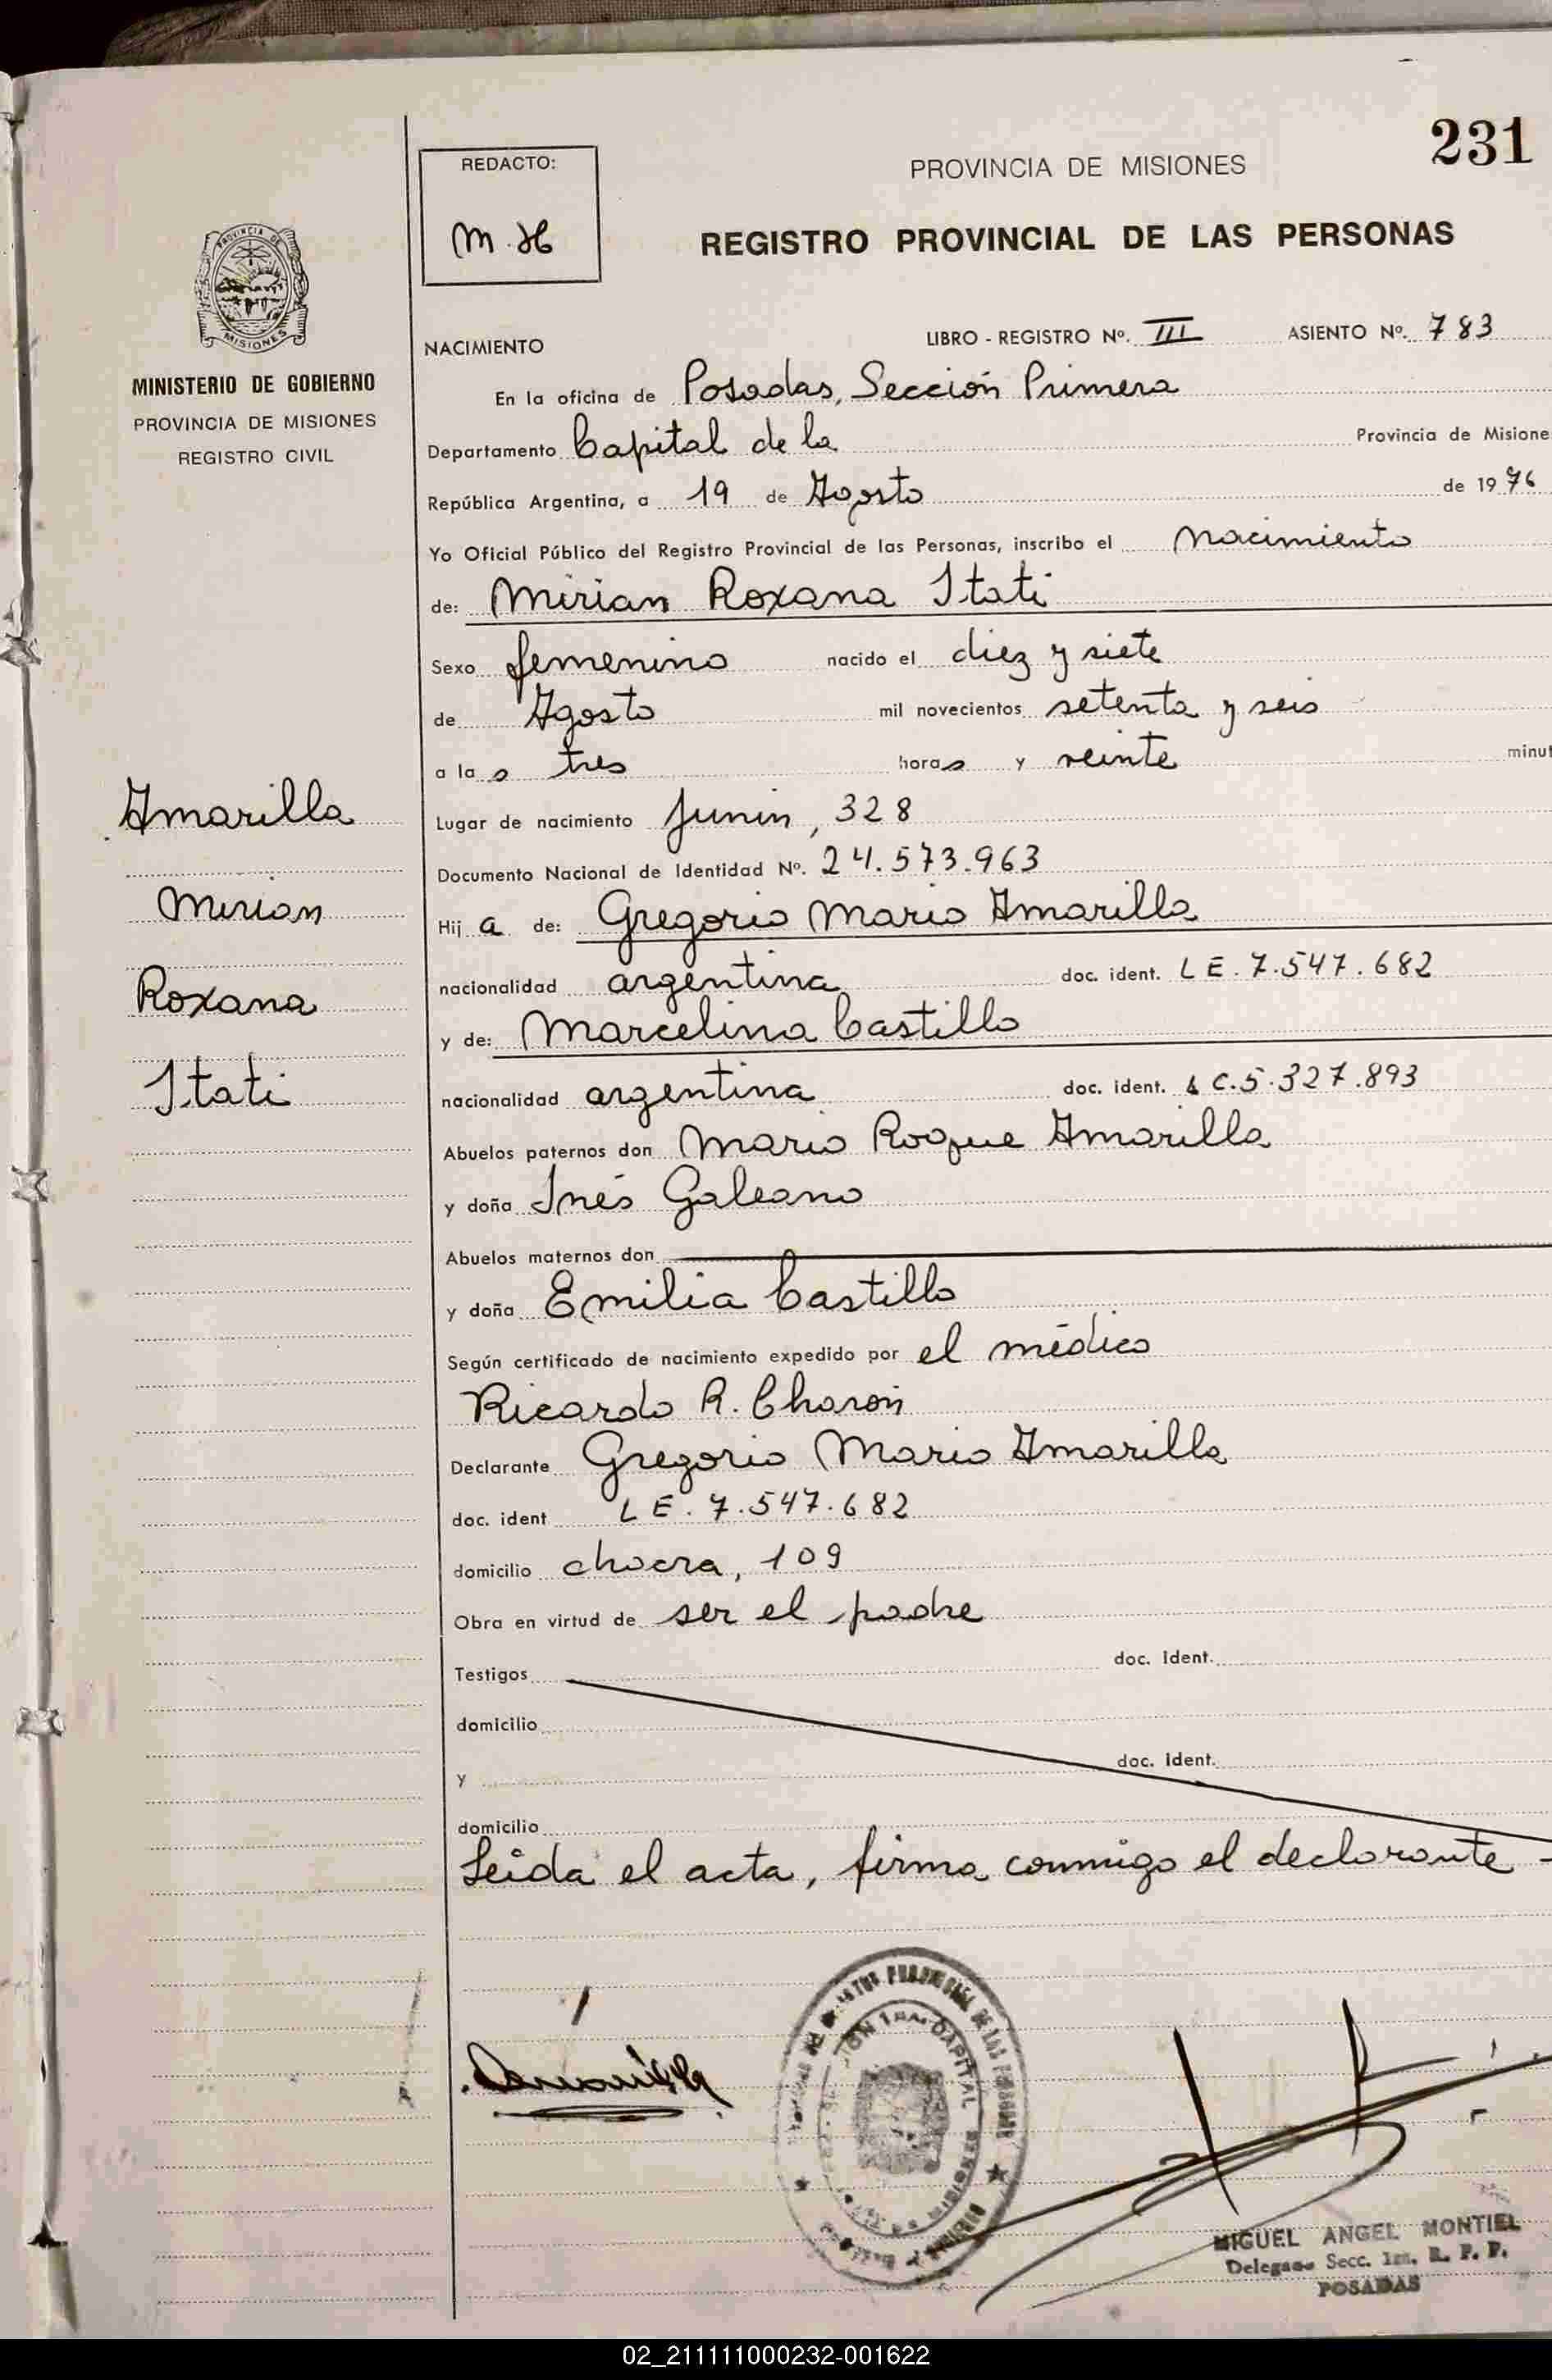 231
REDACTO:
M.H
PROVINCIA DE MISIONES
REGISTRO PROVINCIAL DE LAS PERSONAS
PROVINCIA DE
MISIONES
MINISTERIO DE GOBIERNO
PROVINCIA DE MISIONES
REGISTRO CIVIL
NACIMIENTO LIBRO - REGISTRO Nº. III ASIENTO Nº. 783
En la oficina de Posadas, Sección Primera
Departamento Capital de la Provincia de Misione
República Argentina, a 19 de Agosto de 1976
Yo Oficial Público del Registro Provincial de las Personas, inscribo el nacimiento
de: Mirian Roxana Itati
Sexo femenino nacido el diez y siete
de Agosto mil novecientos setenta y seis
a la s tres horas y veinte minut
Lugar de nacimiento Junin, 328
Documento Nacional de Identidad Nº. 24.573.963
Hij a de: Gregorio Mario Amarilla
nacionalidad argentina doc. ident. L E. 7.547.682
y de: Marcelina Castillo
nacionalidad argentina doc. ident. L C. 5.327.893
Abuelos paternos don Mario Roque Amarilla
y doña Inés Galeano
Abuelos maternos don
y doña Emilia Castillo
Según certificado de nacimiento expedido por el médico
Ricardo R. Charon
Declarante Gregorio Mario Amarilla
doc. ident L E. 7.547.682
domicilio chacra, 109
Obra en virtud de ser el padre
Testigos doc. ident.
domicilio
y doc. ident.
domicilio
Leida el acta, firma conmigo el declarante -
Amarilla
Mirian
Roxana
Itati
CAPITAL
MIGUEL ANGEL MONTIEL
Delegado Secc. 1ra. R. P. P.
POSADAS
02_211111000232-001622